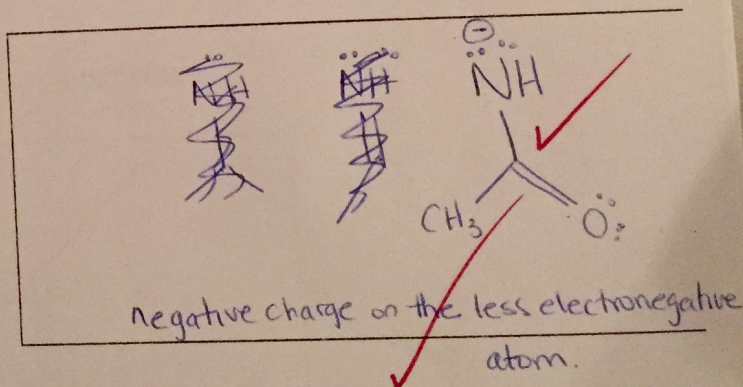 NH
CH3
O
negative charge on the less electronegative
atom.